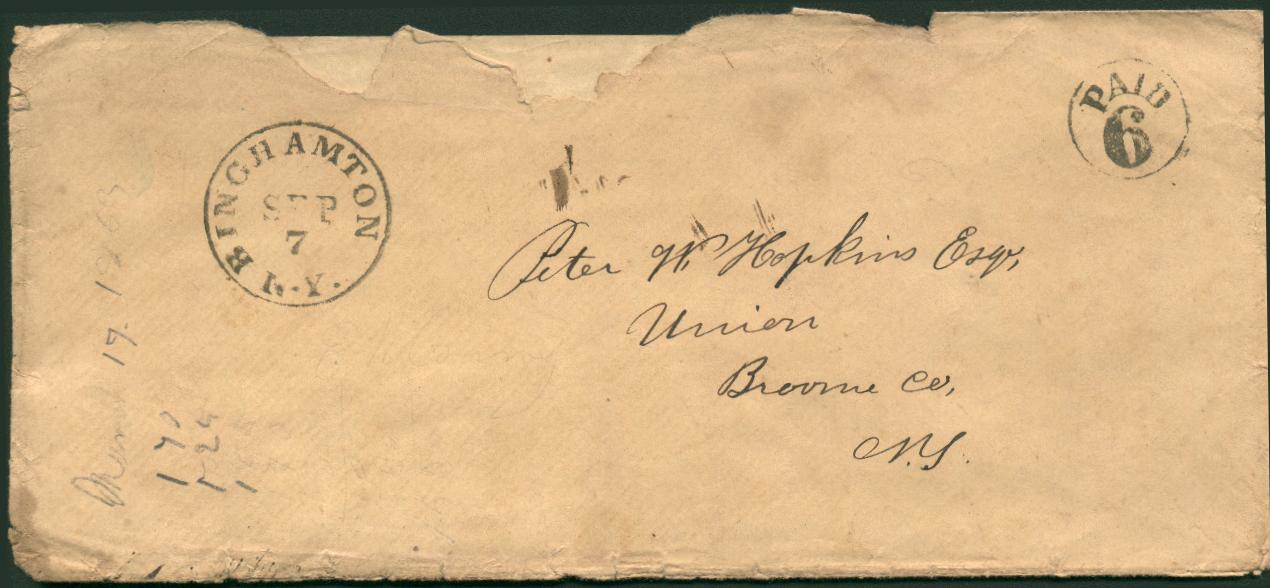 BINGHAMTON
SEP
7
N.Y.
PAID
6
Peter W. Hopkins Esqr,
Union
Broome Co,
N.Y.
17.